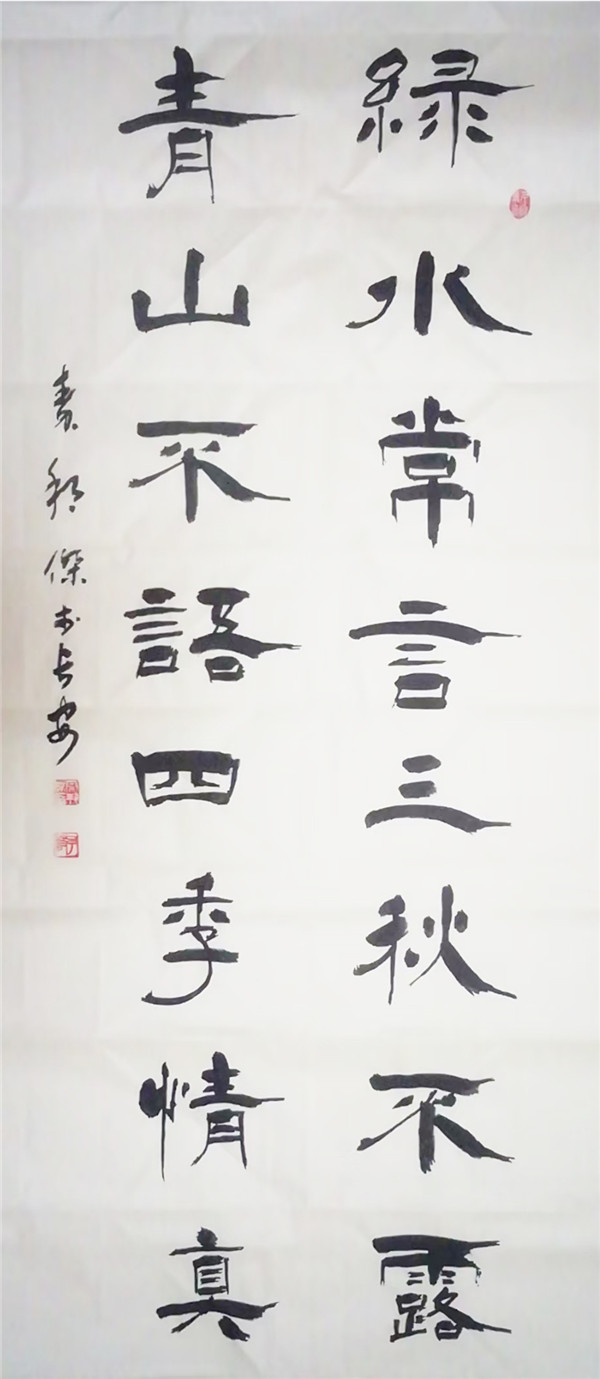 綠水常言三秋不露
青山不語四季情真
傑書長安